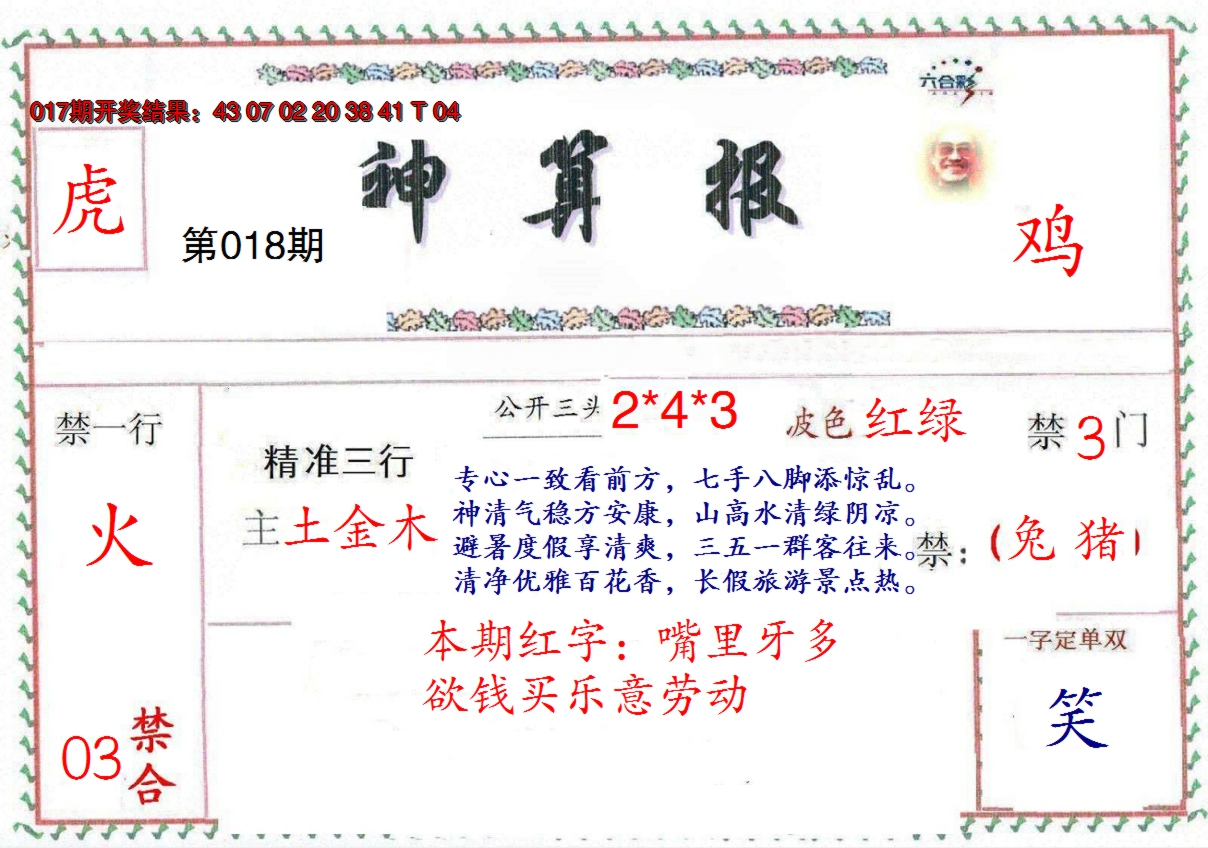 六合彩
017期开奖结果：43 07 02 20 38 41 T 04
神算报
虎
第018期
鸡
公开三头 2*4*3
波色 红绿
禁 3 门
禁一行
火
精准三行
主 土金木
专心一致看前方，七手八脚添惊乱。
神清气稳方安康，山高水清绿阴凉。
避暑度假享清爽，三五一群客往来。
清净优雅百花香，长假旅游景点热。
禁：（兔 猪）
本期红字：嘴里牙多
欲钱买乐意劳动
一字定单双
笑
03 禁合